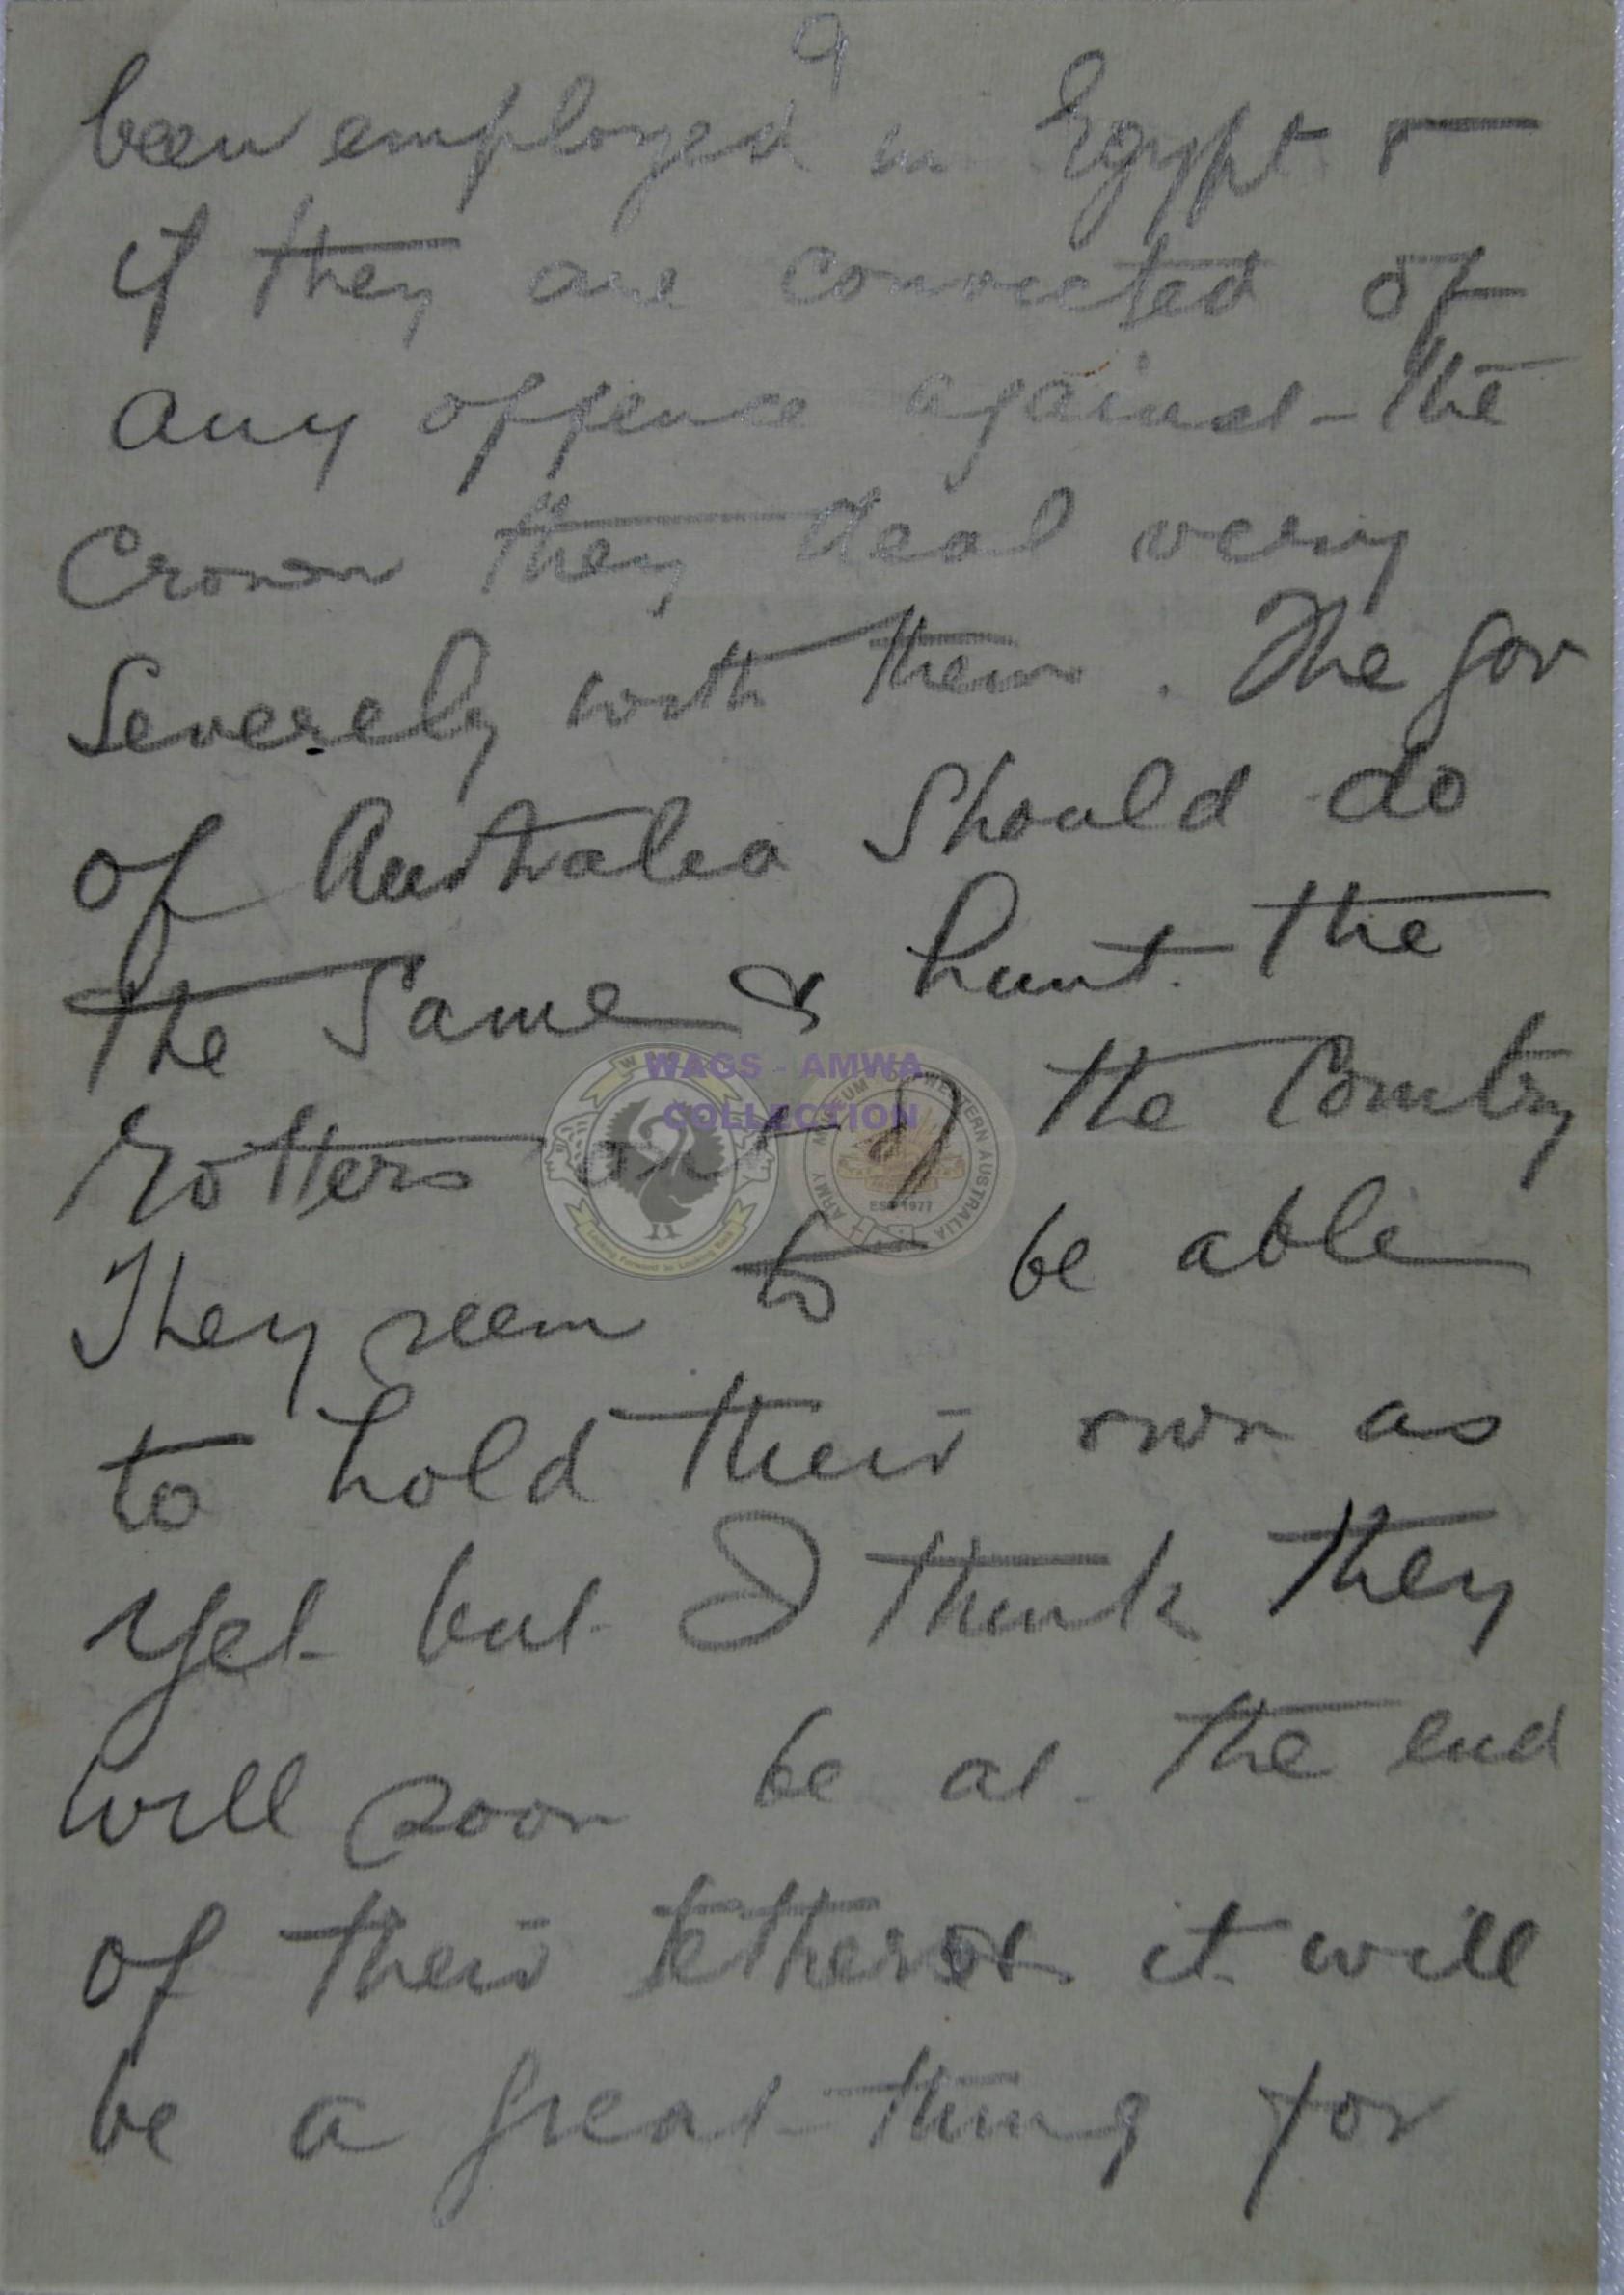 9
been employed in Egypt &
if they are convicted of
any offence against the
Crown they deal very
Severely with them. The Gov
of Australia Should do
the Same & hunt the
rotters out of the Country
They seem to be able
to hold their own as
yet but I think they
will soon be at the end
of their tether & it will
be a great thing for
WAGS - AMWA
COLLECTION
ARMY MUSEUM OF WESTERN AUSTRALIA
EST 1977